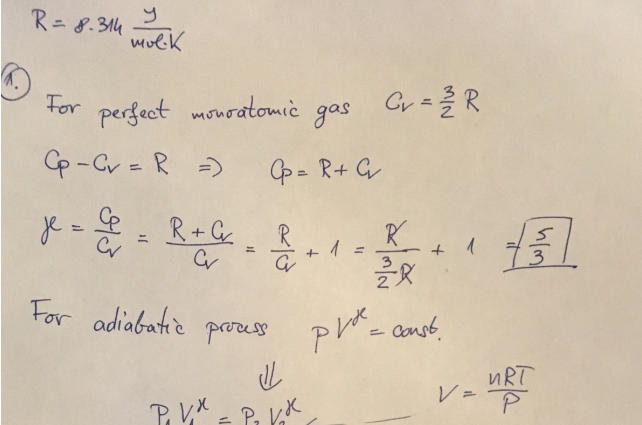 R = 8.314 J/mol.K
1.
For perfect monoatomic gas Cv = 3/2 R
Cp - Cv = R => Cp = R + Cv
ϰ = Cp/Cv = (R + Cv)/Cv = R/Cv + 1 = R/(3/2 R) + 1 = 5/3
For adiabatic process pV^ϰ = const.
⇓
P₁V₁^ϰ = P₂V₂^ϰ V = nRT/P